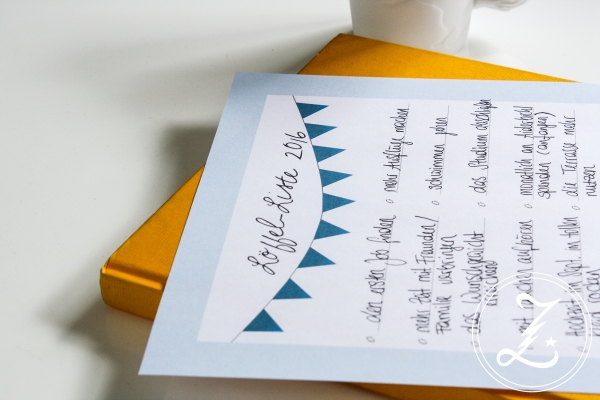 Löffel-Liste 2016
○ den ersten Job finden
○ mehr Zeit mit Freunden/
Familie verbringen
○ das Wunschgewicht
erreichen
○ mit aufhören
○ Hochzeit im Sept. in
rocken
○ mehr Ausflüge machen
○ schwimmen gehen
○ das Studium
○ monatlich an
spenden (anfangen)
○ die Terrasse mehr
nutzen